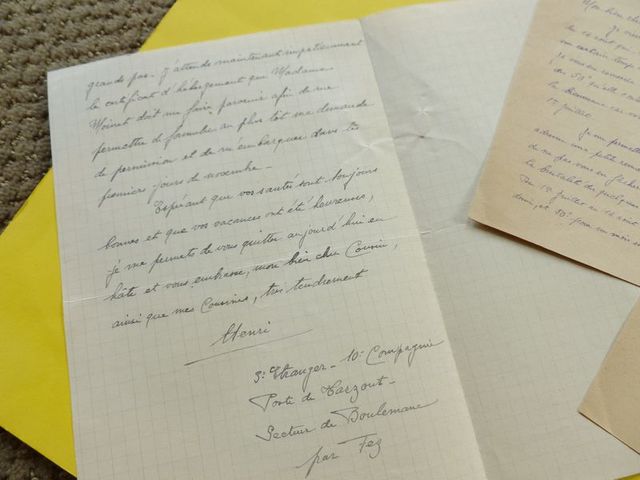 grands pas. J'attends maintenant impatiemment
le certificat d'hébergement que Madame
Moinet doit me faire parvenir afin de me
permettre de formuler au plus tôt ma demande
de permission et de m'embarquer dans les
premiers jours de novembre.
Espérant que vos santés sont toujours
bonnes et que vos vacances ont été heureuses,
je me permets de vous quitter aujourd'hui en
hâte et vous embrasse, mon bien cher Cousin,
ainsi que mes Cousines, très tendrement
Henri
3e Etranger - 10e Compagnie
Poste de Tarzout -
Secteur de Boulemane
par Fez
Mon bien cher
un certain temps
15 juillet.
Je me permets
la brutalité du
Du 14 juillet au 12 août